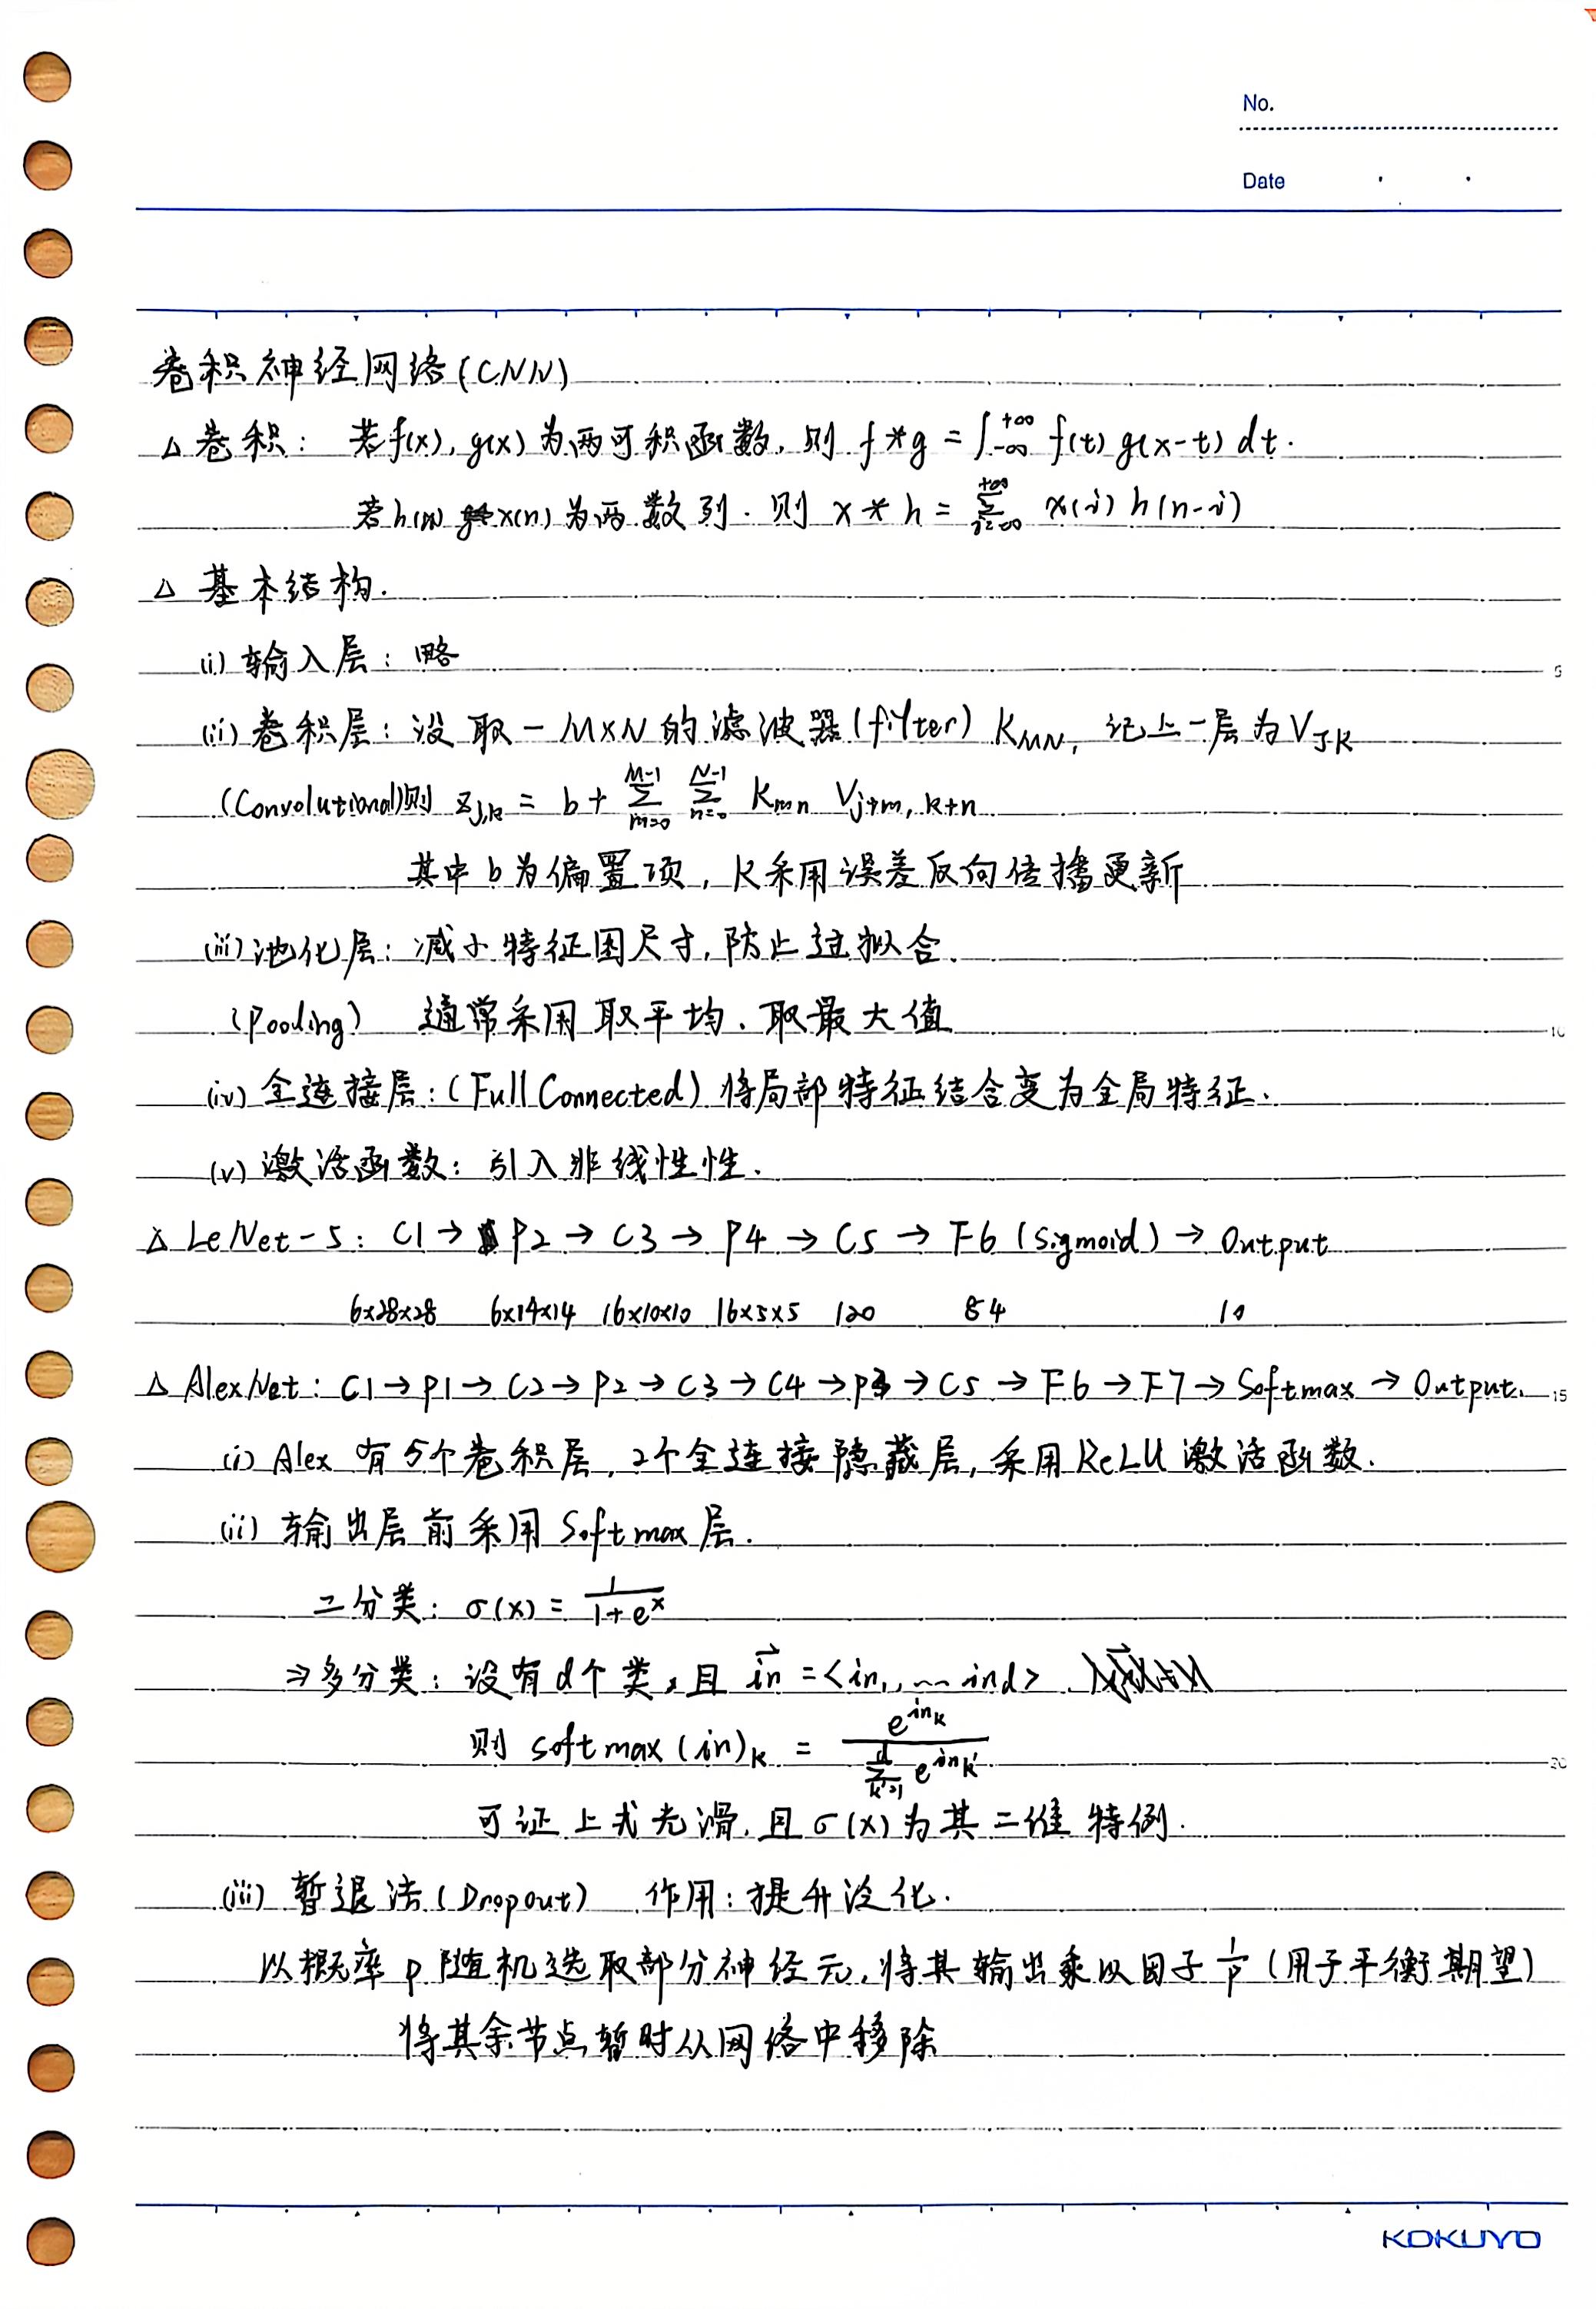 No.
Date
卷积神经网络(CNN)
△ 卷积: 若f(x), g(x) 为两可积函数, 则 f*g = ∫_{-∞}^{+∞} f(t) g(x-t) dt.
若h(n) x(n) 为两数列. 则 x * h = ∑_{i=-∞}^{+∞} x(i) h(n-i)
△ 基本结构.
(i) 输入层: 略
5
(ii) 卷积层: 设取一M×N的滤波器(filter) K_{MN}, 记上一层为V_{JK}
(Convolutional)则 z_{j,k} = b + ∑_{m=0}^{M-1} ∑_{n=0}^{N-1} K_{mn} V_{j+m, k+n}
其中b为偏置项, K采用误差反向传播更新
(iii) 池化层: 减小特征图尺寸, 防止过拟合.
(Pooling) 通常采用取平均、取最大值
10
(iv) 全连接层: (Full Connected) 将局部特征结合变为全局特征.
(v) 激活函数: 引入非线性性.
△ LeNet-5: C1 → P2 → C3 → P4 → C5 → F6 (Sigmoid) → Output
6x28x28 6x14x14 16x10x10 16x5x5 120 84 10
△ AlexNet: C1 → P1 → C2 → P2 → C3 → C4 → P3 → C5 → F6 → F7 → Softmax → Output.
15
(i) Alex 有5个卷积层, 2个全连接隐藏层, 采用ReLU激活函数.
(ii) 输出层前采用Softmax层.
二分类: σ(x) = 1/(1+e^x)
⇒多分类: 设有d个类, 且 \vec{in} = <in₁, … in_d>
则 softmax(in)_k = e^{in_k} / ∑_{k'=1}^{d} e^{in_{k'}}
20
可证上式光滑, 且σ(x)为其二维特例.
(iii) 暂退法(Dropout) 作用: 提升泛化.
以概率p随机选取部分神经元, 将其输出乘以因子 1/p (用于平衡期望)
将其余节点暂时从网络中移除
KOKUYO